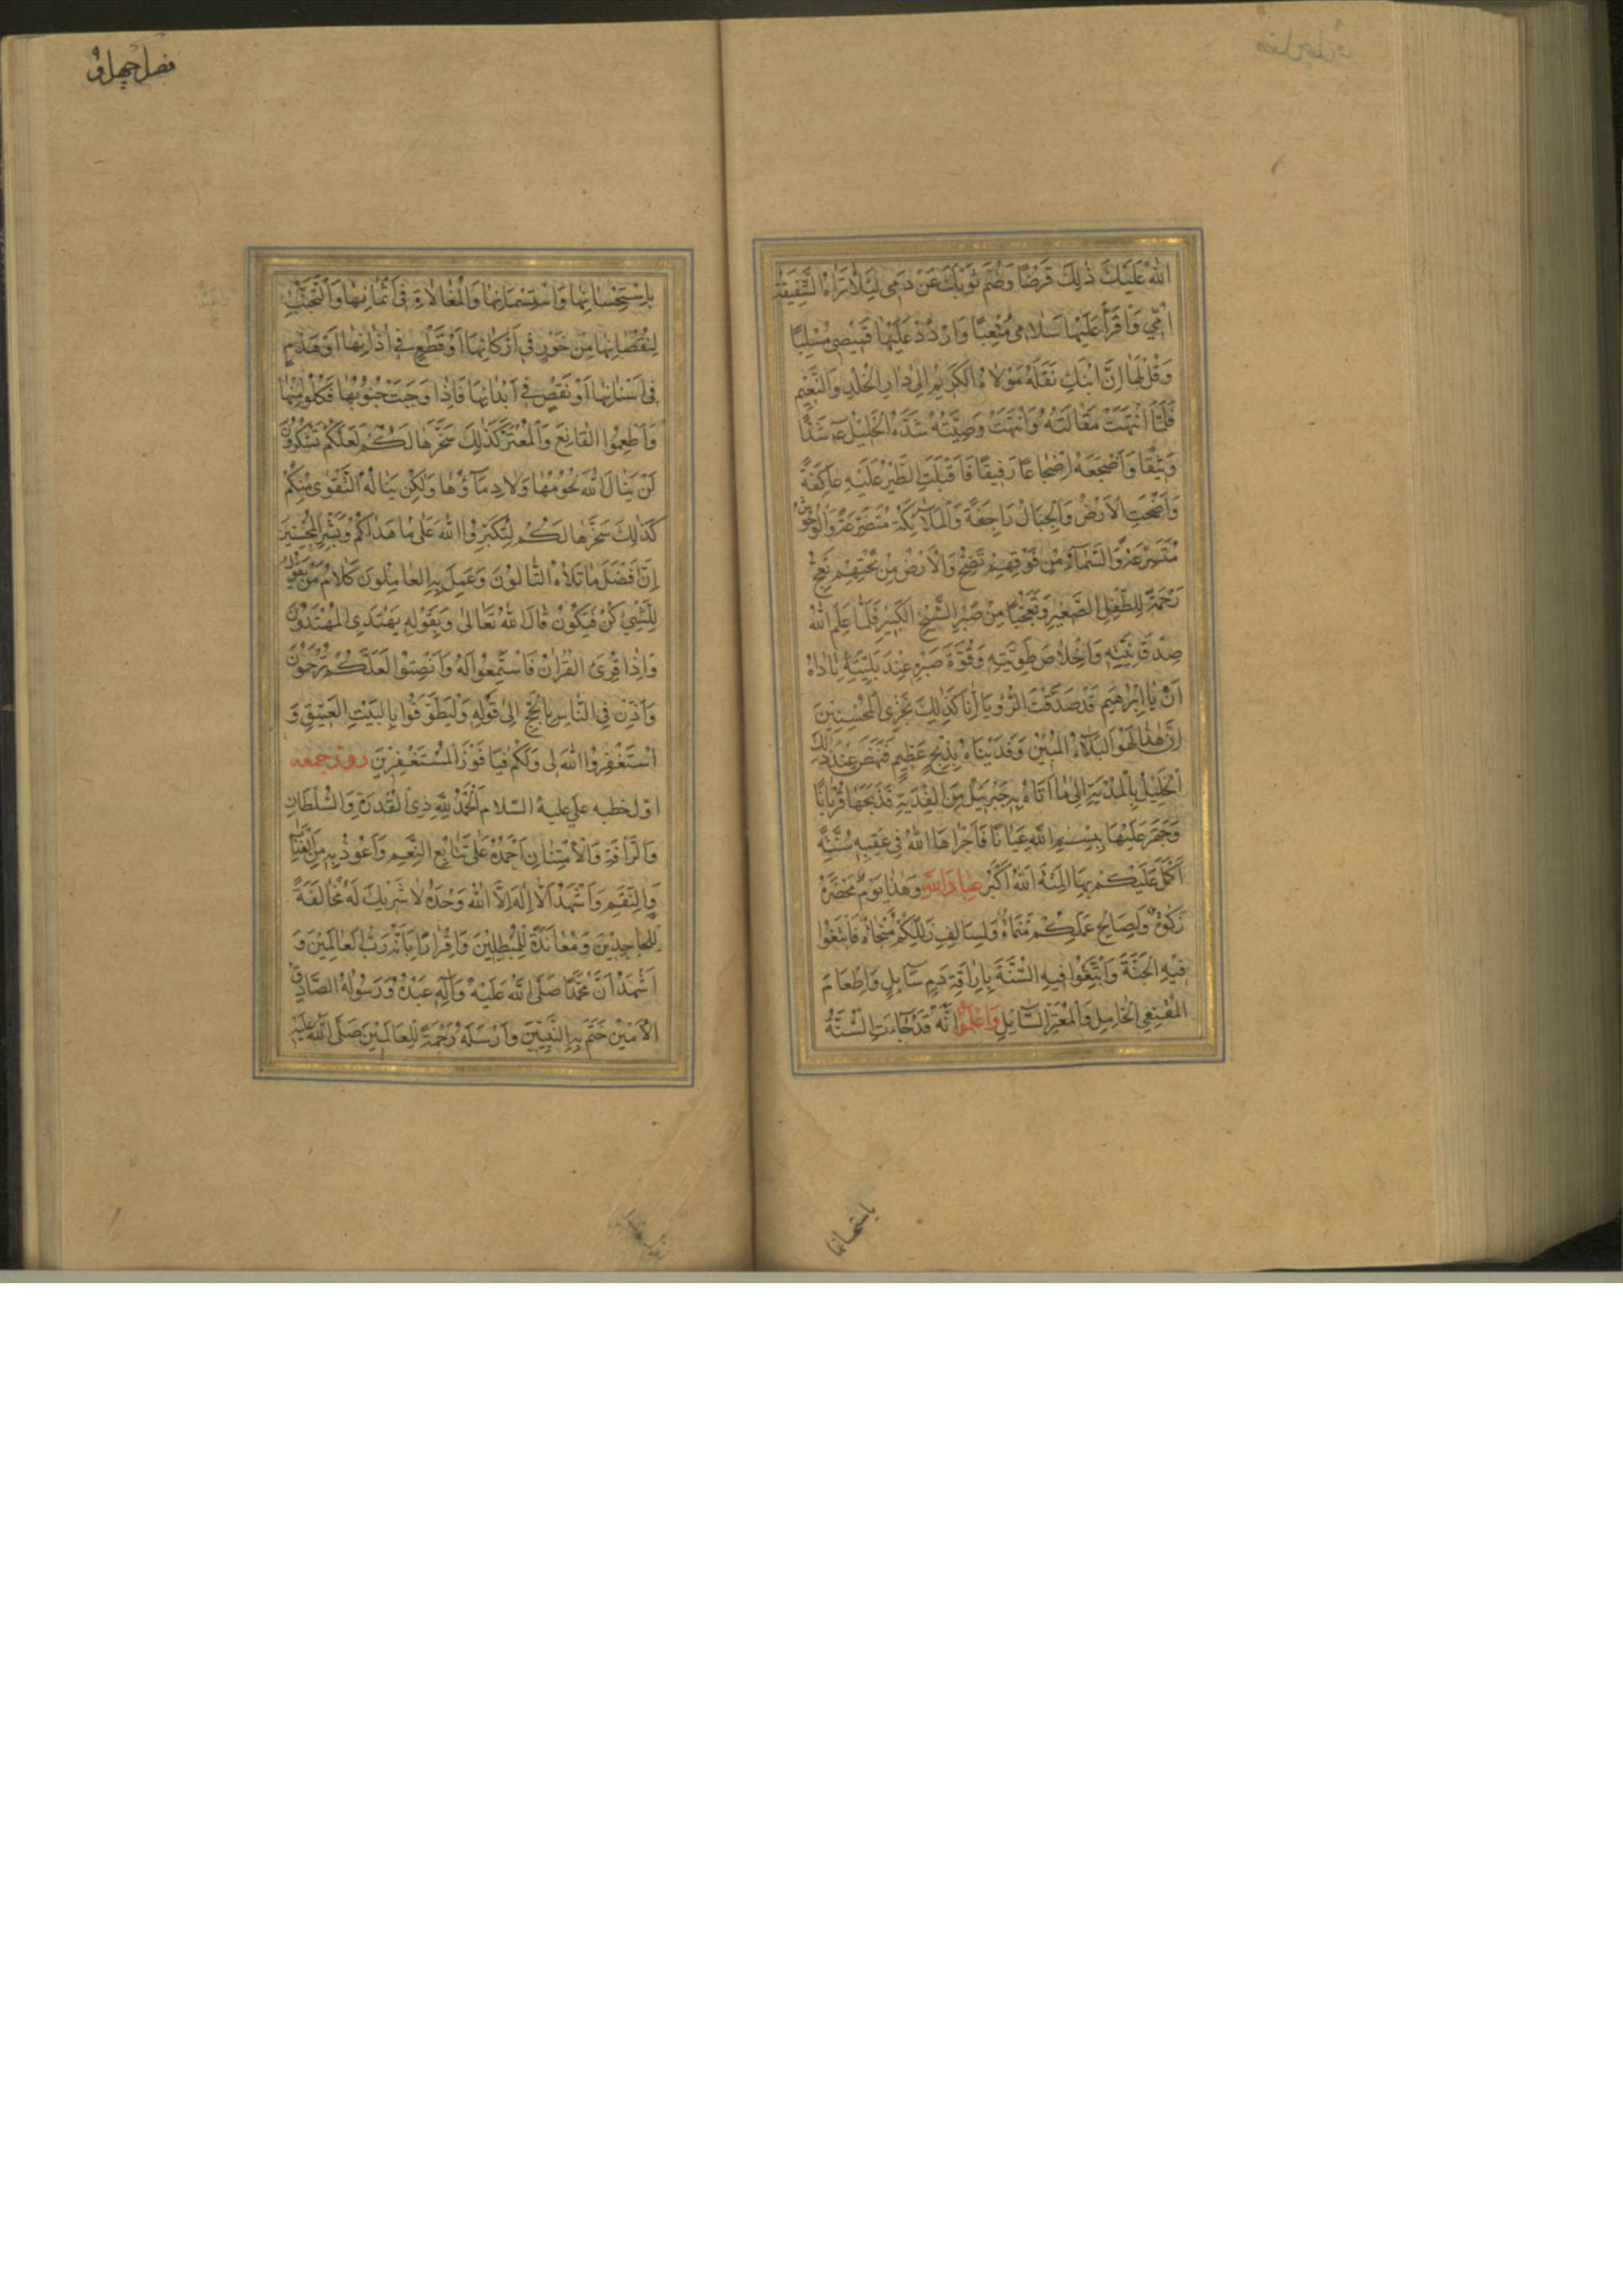 اللهُ عَلَيْكَ ذٰلِكَ فَرْضًا وَضُمَّ ثَوْبَكَ عَنْ دَمِي لِئَلَّا تَرَاهُ الشَّفِيقَةُ
اُمِّي وَاقْرَأْ عَلَيْهَا سَلَامِي مُتْعِبًا وَارْدُدْ عَلَيْهَا قَمِيْصِي مُسْلِبًا
وَقُلْ لَهَا اِنَّ ابْنَكِ نَقَلَهُ مَوْلَاهُ الكَرِيمُ اِلٰى دَارِ الخُلْدِ وَالنَّعِيْمِ
فَلَمَّا انْتَهَتْ مَقَالَتُهُ وَانْتَهَتْ وَصِيَّتُهُ شَدَّهُ الْخَلِيْلُ عم شَدًّا
وَثِيْقًا وَاَضْجَعَهُ اِضْجَاعًا رَفِيقًا فَاَقْبَلَتِ الطَّيْرُ عَلَيْهِ عَاكِفَةً
وَاَضْحَتِ الْاَرْضُ وَالْجِبَالُ رَاجِفَةً وَالْمَلَآئِكَةُ مُتَضَرِّعَةً وَالْوُحُوْشُ
وَالسَّمَآءُ مِنْ فَوْقِهِمْ تَضِجُّ وَالْاَرْضُ مِنْ تَحْتِهِمْ تَعِجُّ
رَحْمَةً لِلطِّفْلِ الصَّغِيْرِ وَتَعَجُّبًا مِنْ صَبْرِ الشَّيْخِ الكَبِيْرِ فَلَمَّا عَلِمَ اللهُ
صِدْقَ نِيَّتِهِ وَاِخْلَاصَ طَوِيَّتِهِ وَقُوَّةَ صَبْرِهِ عِنْدَ بَلِيَّتِهِ نَادَاهُ
اَنْ يَا اِبْرٰهِيْمُ قَدْ صَدَّقْتَ الرُّؤْيَا اِنَّا كَذٰلِكَ نَجْزِي الْمُحْسِنِيْنَ
اِنَّ هٰذَا لَهُوَ البَلَآءُ الْمُبِيْنُ وَفَدَيْنَاهُ بِذِبْحٍ عَظِيْمٍ فَنَهَضَ عِنْدَ ذٰلِكَ
الْخَلِيْلُ بِالْمُدْيَةِ اِلٰى مَا اَتَاهُ بِهِ جَبْرَئِيْلُ مِنَ الْفِدْيَةِ فَذَبَحَهَا قُرْبَانًا
وَجَهَرَ عَلَيْهَا بِسْمِ اللهِ عَيَانًا فَاَجْرَاهَا اللهُ فِي عَقِبِهِ سُنَّةً
اَكْمَلَ عَلَيْكُمْ بِهَا الْمِنَّةَ اَللهُ اَكْبَرُ عِبَادَ اللهِ وَهٰذَا يَوْمٌ مَحْضَرُهُ
زَكٰوةٌ وَلِصَالِحِ عَمَلِكُمْ مَنْمَاةٌ وَلِسَالِفِ زَلَلِكُمْ مَنْجَاةٌ فَابْتَغُوْا
فِيْهِ الْجَنَّةَ وَاتَّبِعُوْا فِيْهِ السُّنَّةَ بِاِرَاقَةِ دَمٍ سَآئِلٍ وَاِطْعَامِ
الْمُقْنِعِ الْخَامِلِ وَالْمُعْتَرِّ السَّآئِلِ وَاعْلَمُوْا اَنَّهُ قَدْ جَآءَتِ السُّنَّةُ
باستحسانها
فصل چهل و
بِاسْتِحْسَانِهَا وَاسْتِسْمَانِهَا وَالْمُغَالَاةِ فِي اَثْمَانِهَا وَالتَّجَنُّبِ
لِنُقْصَانِهَا مِنْ خَوَرٍ فِي اَرْكَانِهَا اَوْ قَطْعٍ فِي اٰذَانِهَا اَوْ هَذْمٍ
فِي اَسْنَانِهَا اَوْ نَقْصٍ فِي اَبْدَانِهَا فَاِذَا وَجَبَتْ جُنُوْبُهَا فَكُلُوْا مِنْهَا
وَاَطْعِمُوا الْقَانِعَ وَالْمُعْتَرَّ كَذٰلِكَ سَخَّرْنَاهَا لَكُمْ لَعَلَّكُمْ تَشْكُرُوْنَ
لَنْ يَنَالَ اللهَ لُحُوْمُهَا وَلَا دِمَآؤُهَا وَلٰكِنْ يَنَالُهُ التَّقْوٰى مِنْكُمْ
كَذٰلِكَ سَخَّرَهَا لَكُمْ لِتُكَبِّرُوا اللهَ عَلٰى مَا هَدَاكُمْ وَبَشِّرِ الْمُحْسِنِيْنَ
اِنَّ فَضْلَ مَا تَلَاهُ التَّالُوْنَ وَعَمِلَ بِهِ العَامِلُوْنَ كَلَامُ مَنْ يَقُوْلُ
لِلشَّيْءِ كُنْ فَيَكُوْنُ قَالَ اللهُ تَعَالٰى وَبِقَوْلِهِ يَهْتَدِي الْمُهْتَدُوْنَ
وَاِذَا قُرِئَ الْقُرْاٰنُ فَاسْتَمِعُوْا لَهُ وَاَنْصِتُوْا لَعَلَّكُمْ تُرْحَمُوْنَ
وَاَذِّنْ فِي النَّاسِ بِالْحَجِّ اِلٰى قَوْلِهِ وَلْيَطَّوَّفُوْا بِالْبَيْتِ الْعَتِيْقِ وَ
اسْتَغْفِرُوا اللهَ لِي وَلَكُمْ فَيَا فَوْزَ الْمُسْتَغْفِرِيْنَ روز جمعه
اوّل خطبه علي عليه السّلام اَلْحَمْدُ لِلّٰهِ ذِي الْقُدْرَةِ وَالسُّلْطَانِ
وَالرَّأْفَةِ وَالْاِمْتِنَانِ اَحْمَدُهُ عَلٰى تَتَابُعِ النِّعَمِ وَاَعُوْذُ بِهِ مِنَ الْعَذَابِ
وَالنِّقَمِ وَاَشْهَدُ اَنْ لَا اِلٰهَ اِلَّا اللهُ وَحْدَهُ لَا شَرِيْكَ لَهُ مُخَالَفَةً
لِلْجَاحِدِيْنَ وَمُعَانَدَةً لِلْمُبْطِلِيْنَ وَاِقْرَارًا بِاَنَّهُ رَبُّ الْعَالَمِيْنَ وَ
اَشْهَدُ اَنَّ مُحَمَّدًا صَلَّى اللهُ عَلَيْهِ وَاٰلِهِ عَبْدُهُ وَرَسُوْلُهُ الصَّادِقُ
الْاَمِيْنُ خَتَمَ بِهِ النَّبِيِّيْنَ وَاَرْسَلَهُ رَحْمَةً لِلْعَالَمِيْنَ صَلَّى اللهُ عَلَيْهِ